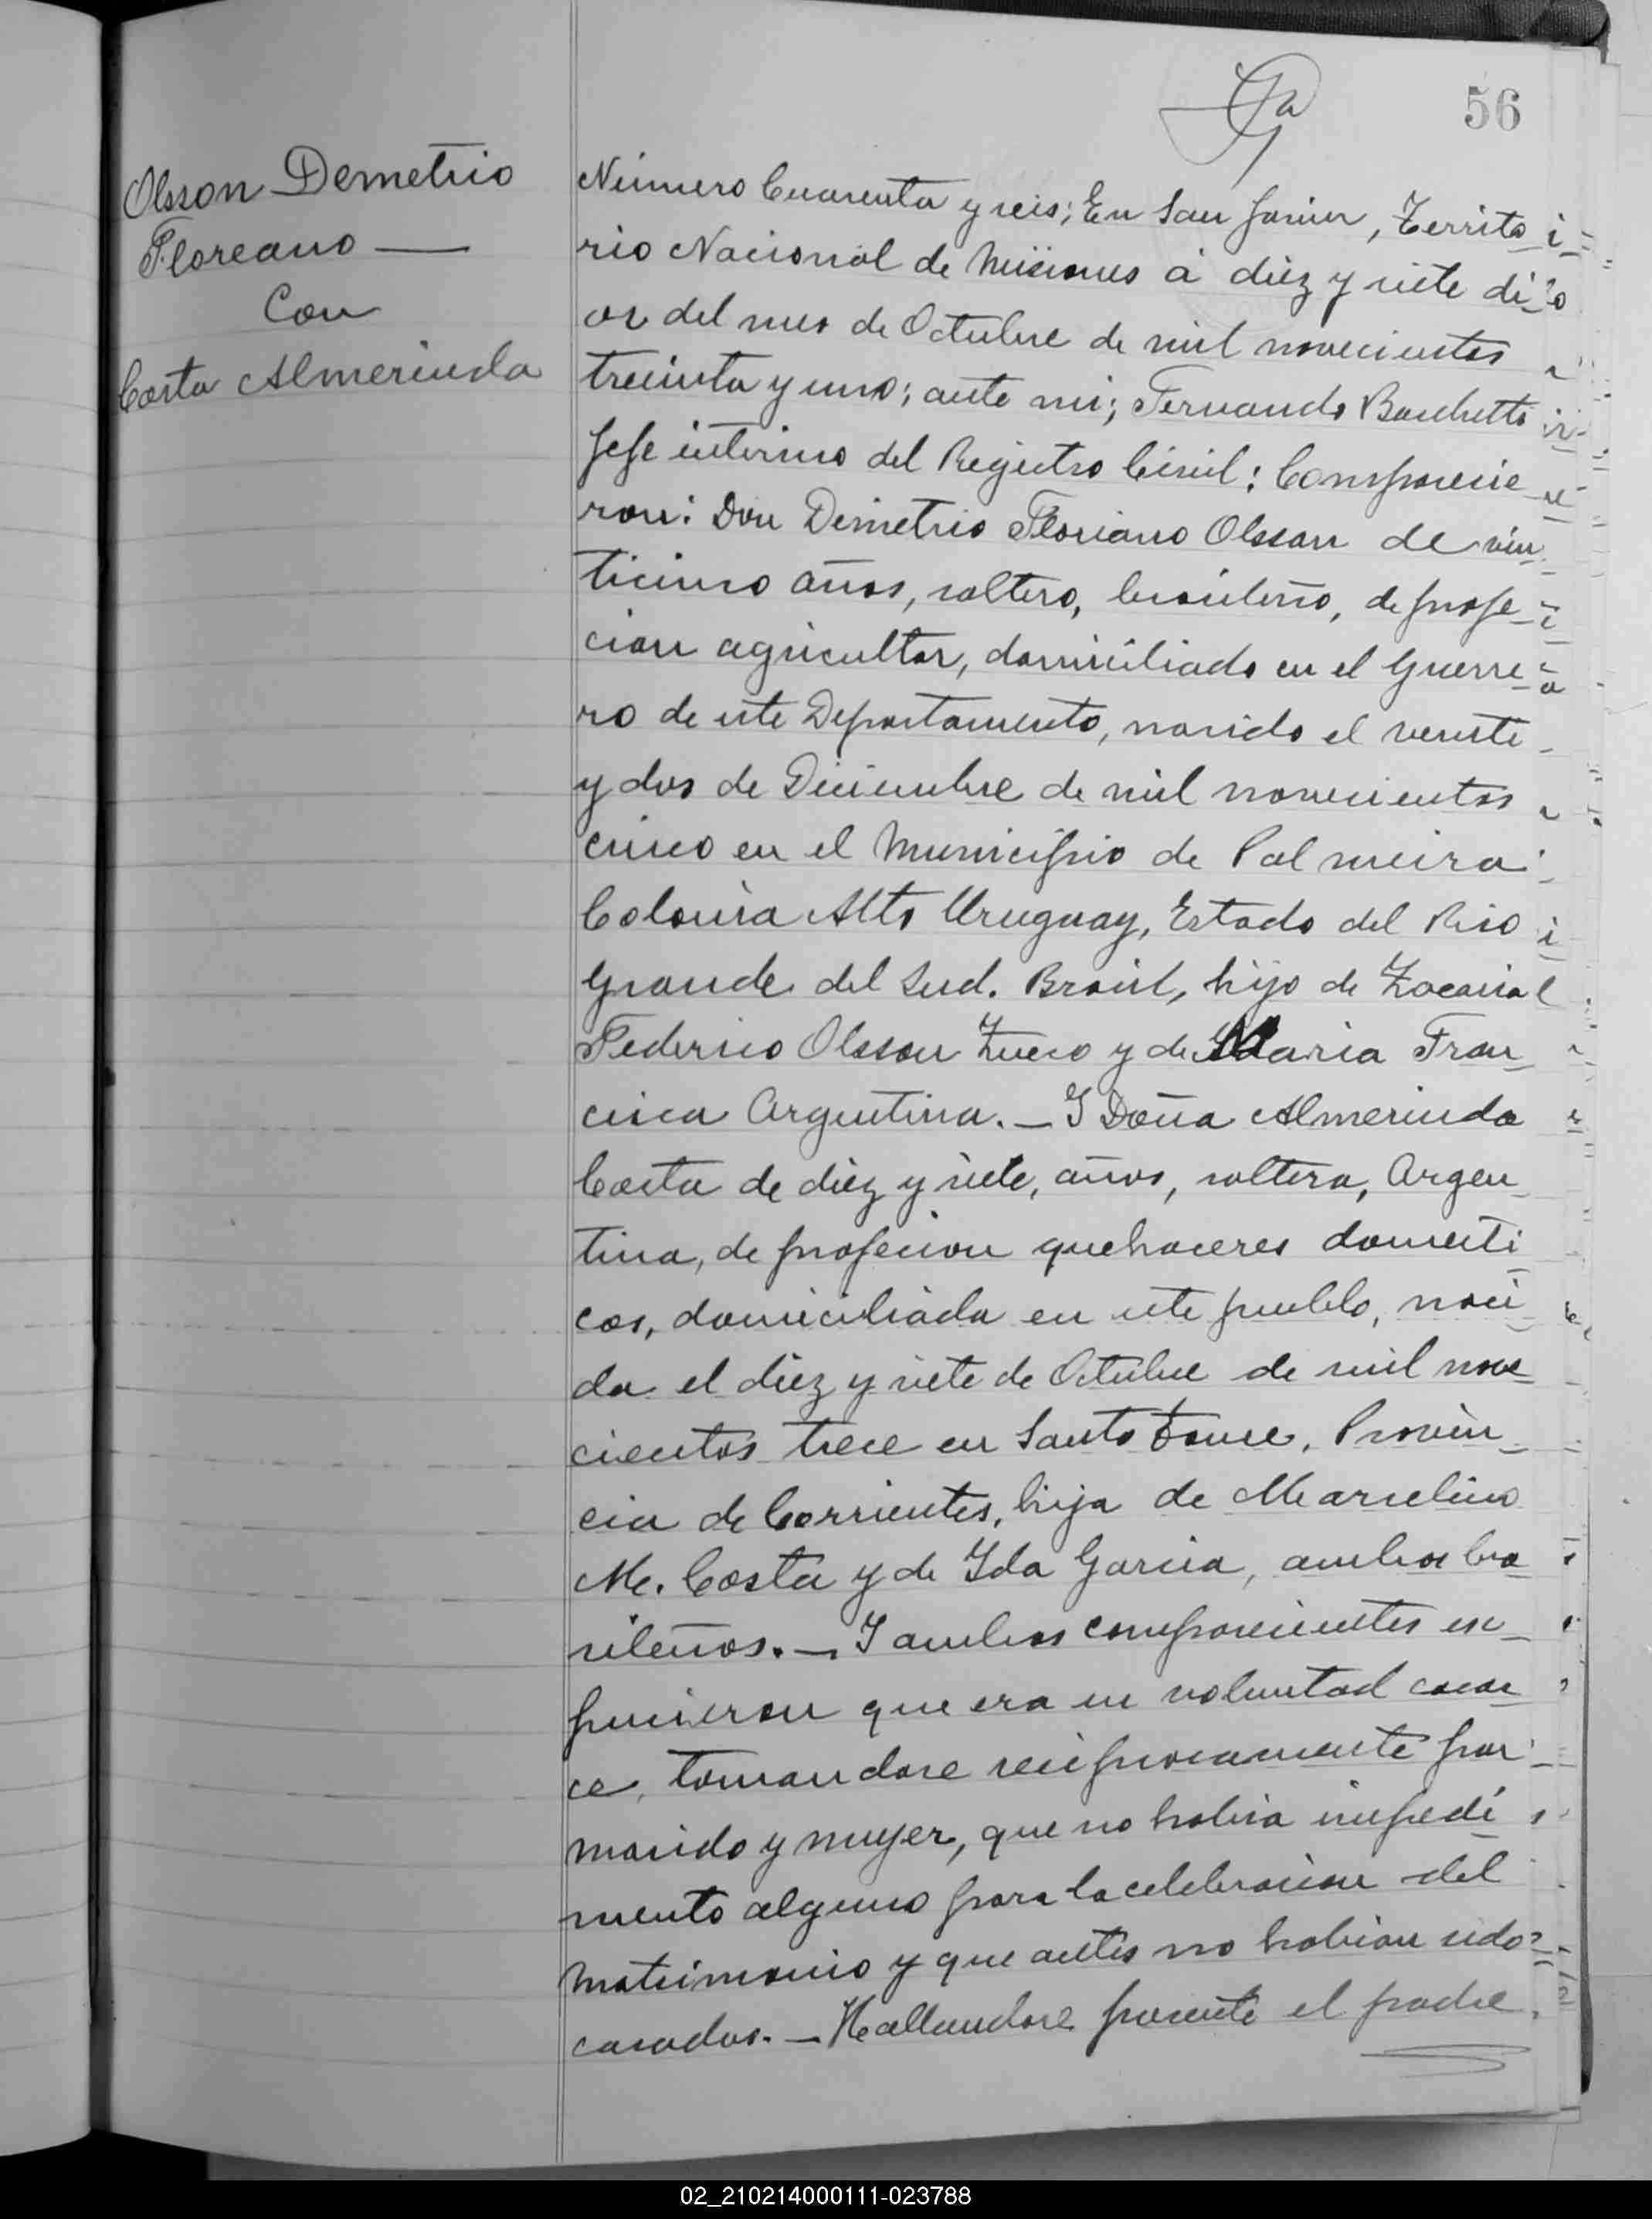 56
Olsson Demetrio
Floreano —
Con
Costa Almerinda
Número Cuarenta y seis; En San Javier, Territo
rio Nacional de Misiones á diez y siete di
as del mes de Octubre de mil novecientos
treinta y uno; ante mi; Fernando
Jefe interino del Registro Civil: Comparecie
ron: Don Demetrio Floriano Olsson de vein
ticinco años, soltero, brasileño, de profe
cion agricultor, domiciliado en el Guerre
ro de este Departamento, nacido el veinte
y dos de Diciembre de mil novecientos
cinco en el Municipio de Palmeira
Colonia Alto Uruguay, Estado del Rio
Grande del Sud. Brasil, hijo de Zacaria
Federico Olsson Zueco y de Maria Fran
cisca Argentina. — Y Doña Almerinda
Costa de diez y siete, años, soltera, Argen
tina, de profecion quehaceres domesti
cos, domiciliada en este pueblo, naci
da el diez y siete de Octubre de mil nove
cientos trece en Santo Tomé, Provin
cia de Corrientes, hija de Marcelino
M. Costa y de Ida Garcia, ambos bra
sileños. — Y ambos comparecientes ex
pusieron que era su voluntad casar
ce, tomandose reciprocamente por
marido y muger, que no habia impedi
mento alguno para la celebracion del
matrimonio y que antes no habian sido
casados. — Hallandose presente el padre
02_210214000111-023788